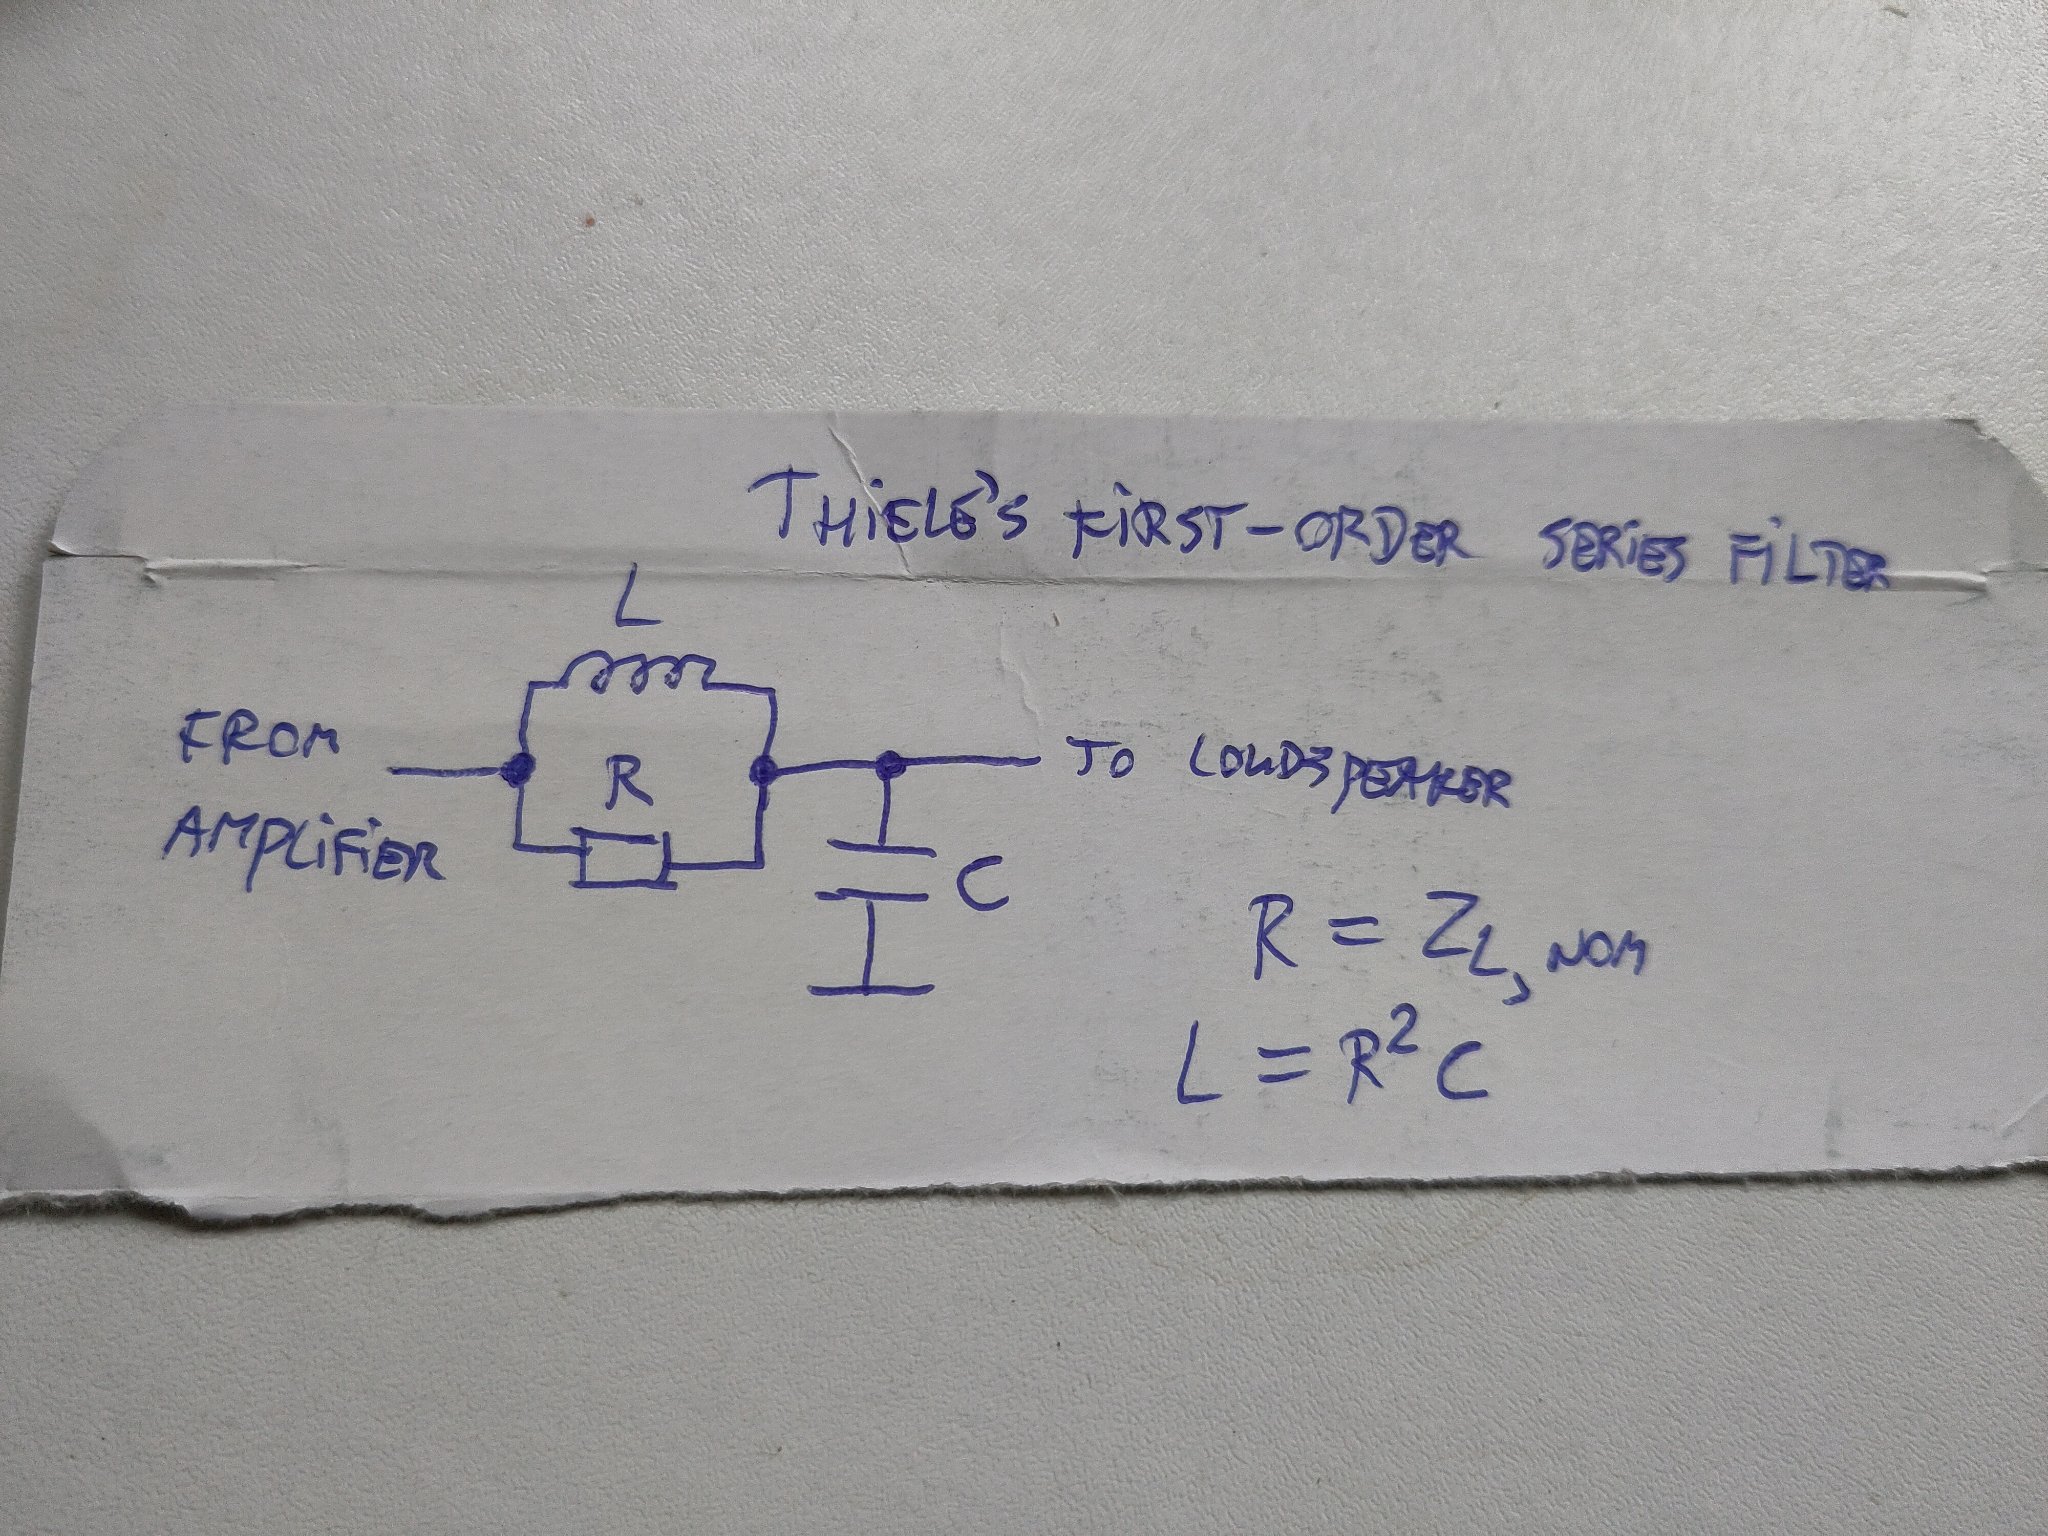 THiELE'S FiRST-ORDER SERiES FiLTER
L
FROM
AMPLiFiER
R
TO LOUDSPEAKER
C
R = Z_L, NOM
L = R² C